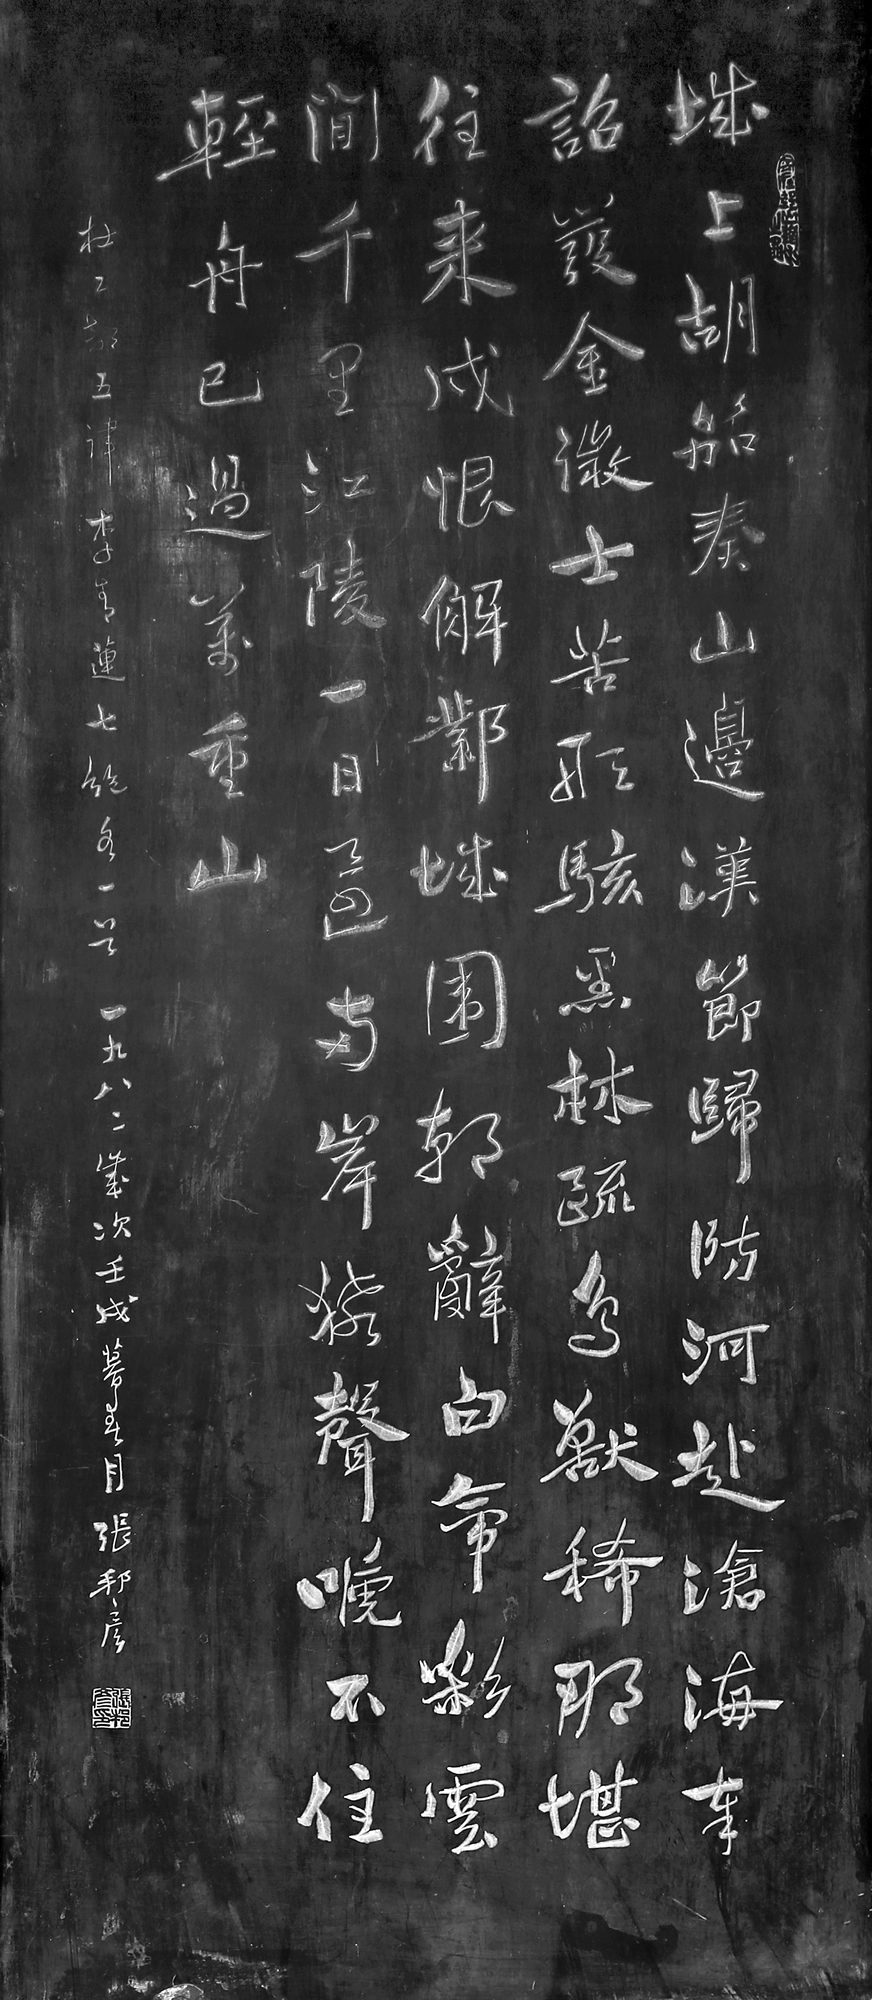 城上胡笳奏山邊漢節歸防河赴滄海奉
詔發金微士苦形骸黑林疏鳥獸稀那堪
往來戍恨解鄴城圍朝辭白帝彩雲
間千里江陵一日還兩岸猿聲嗁不住
輕舟已過萬重山
杜工部五律李青蓮七絕各一首 一九八二歲次壬戌暮春月張邦彥